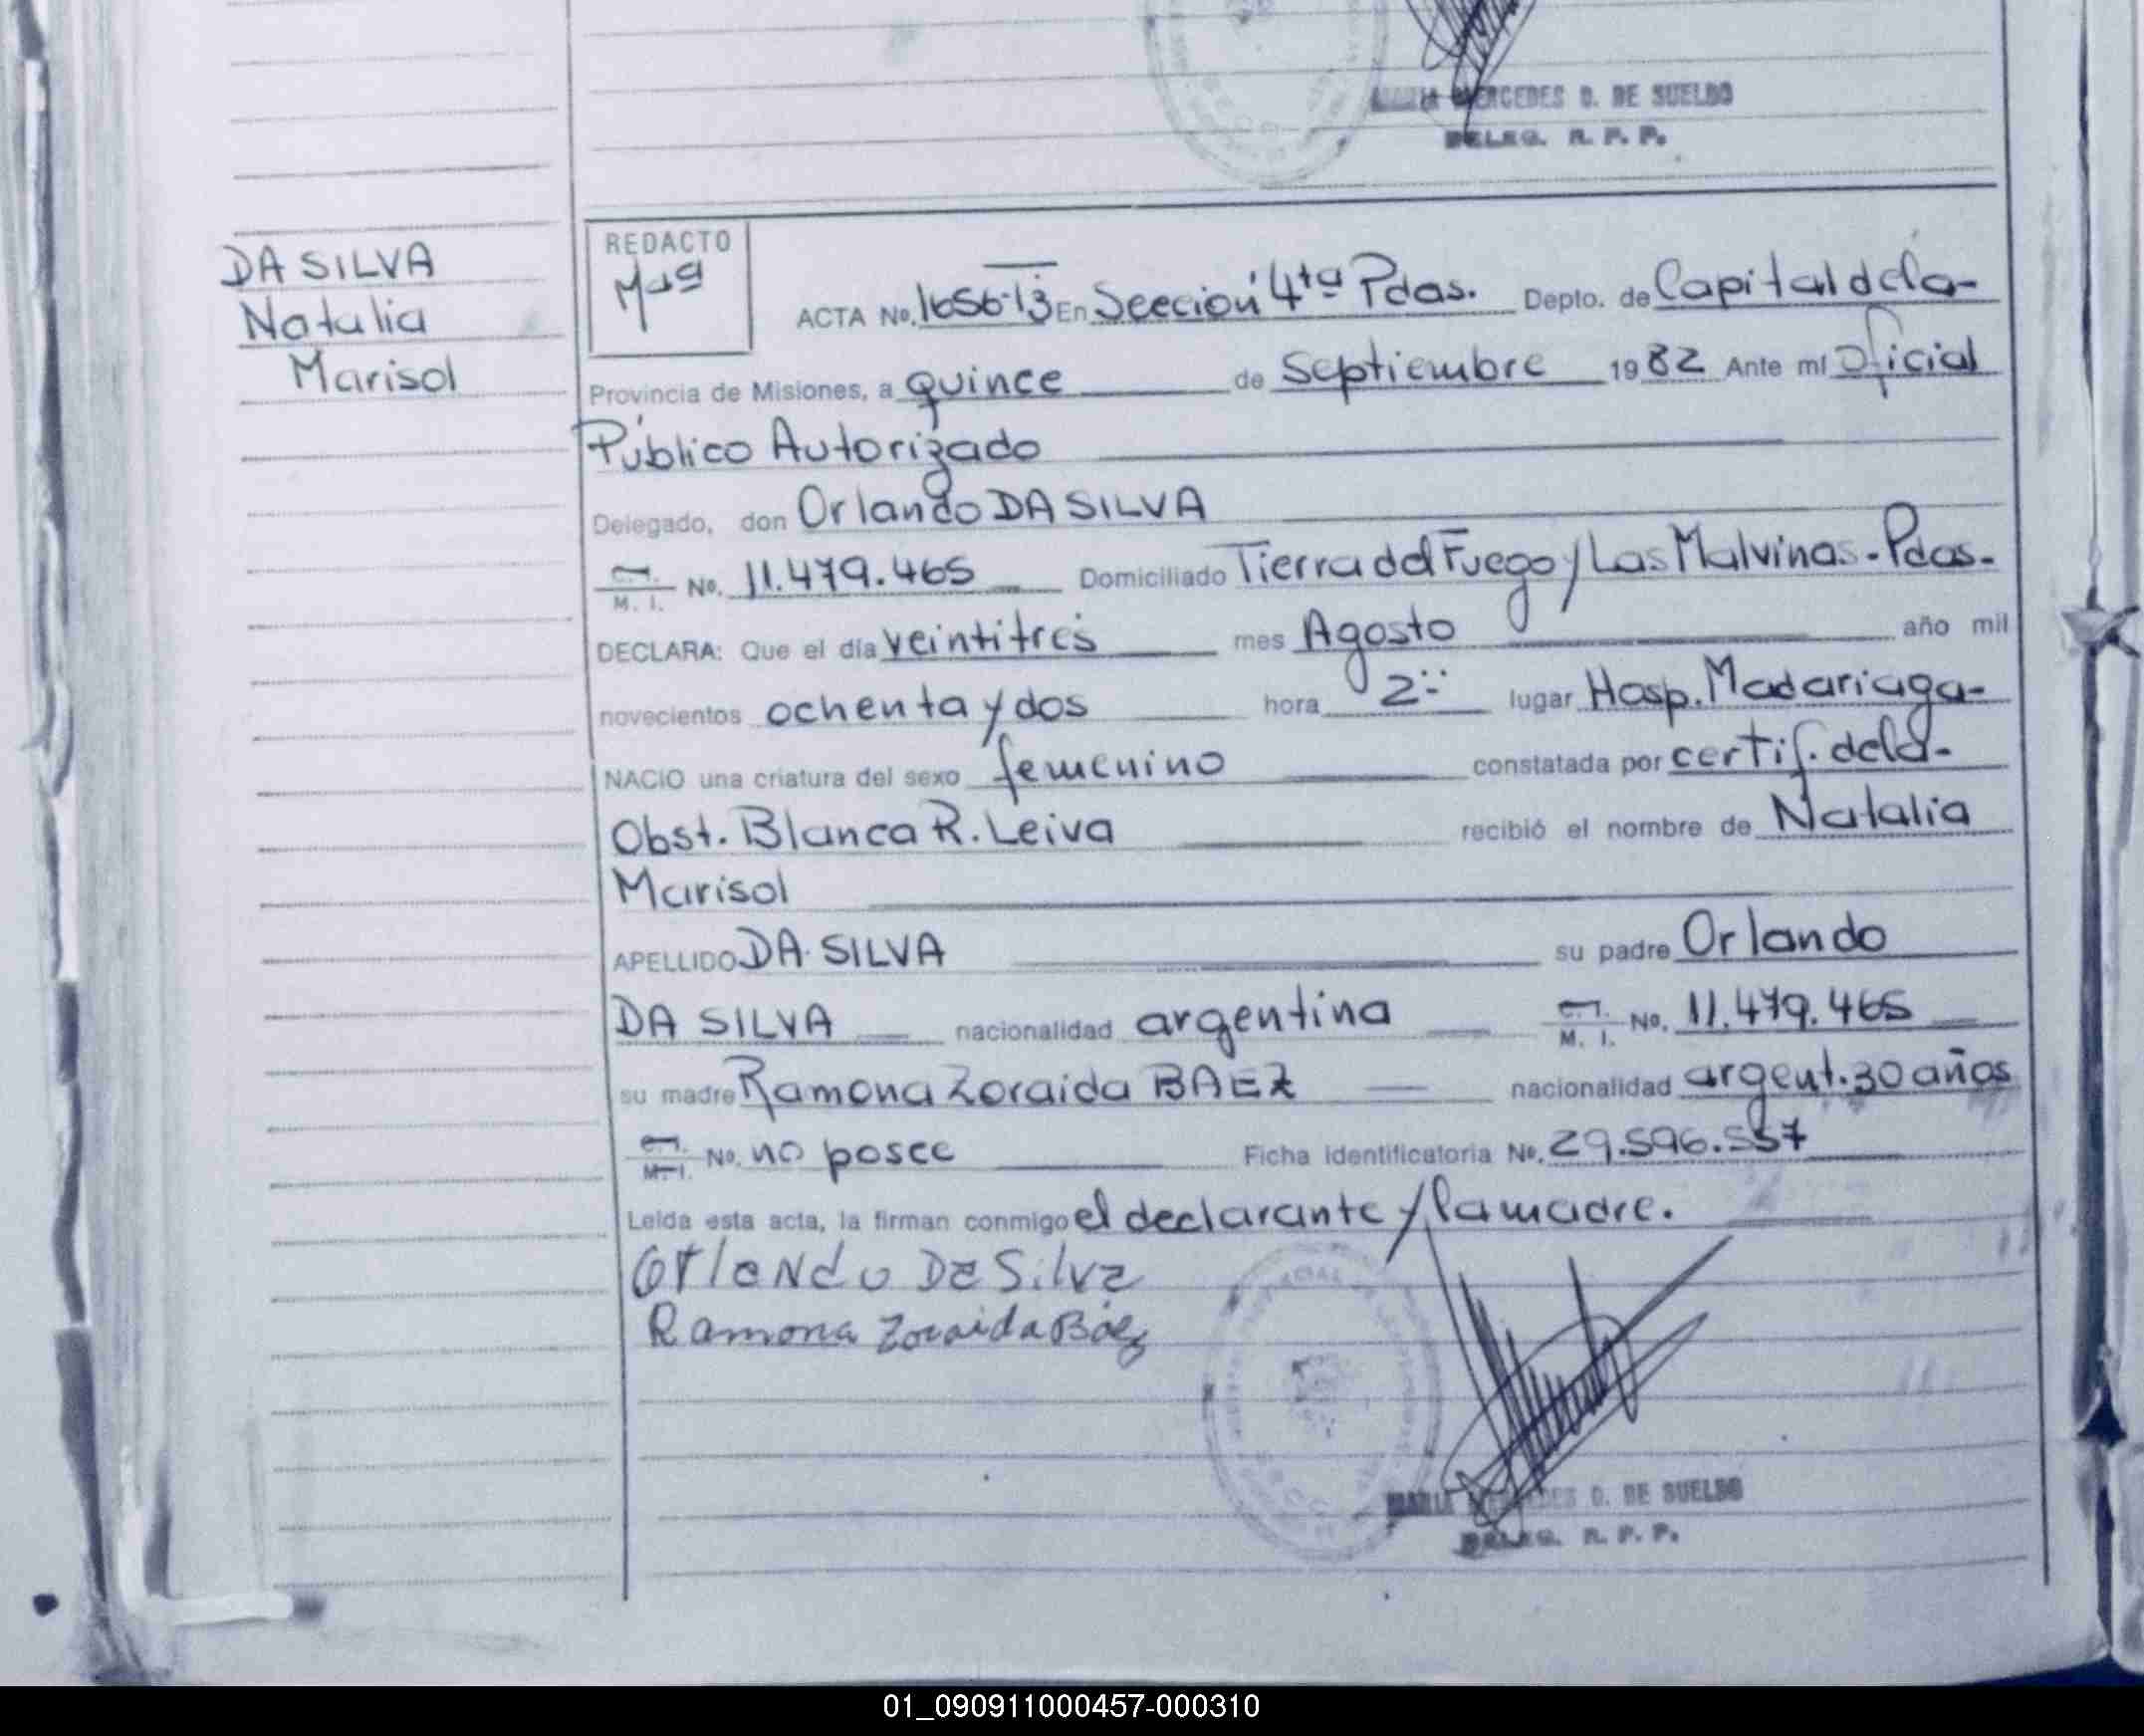 MARIA MERCEDES D. DE SUELDO
DELEG. R. P. P.
DA SILVA
Natalia
Marisol
REDACTO
ACTA No. 1656-13 En Sección 4ta Pdas. Depto. de Capital de la-
Provincia de Misiones, a quince de Septiembre 1982 Ante mí Oficial
Público Autorizado
Delegado, don Orlando DA SILVA
C. I. M. I. No. 11.479.465 Domiciliado Tierra del Fuego y Las Malvinas-Pdas-
DECLARA: Que el día veintitrés mes Agosto año mil
novecientos ochenta y dos hora 2 lugar Hosp. Madariaga-
NACIO una criatura del sexo femenino constatada por certif. de la-
Obst. Blanca R. Leiva recibió el nombre de Natalia
Marisol
APELLIDO DA SILVA su padre Orlando
DA SILVA nacionalidad argentina C. I. M. I. No. 11.479.465
su madre Ramona Zoraida BAEZ nacionalidad argent. 30 años
C. I. M. I. No. no posee Ficha identificatoria No. 29.596.557
Leída esta acta, la firman conmigo el declarante y la madre.
Orlando Da Silva
Ramona Zoraida Báez
MARIA MERCEDES D. DE SUELDO
DELEG. R. P. P.
01_090911000457-000310